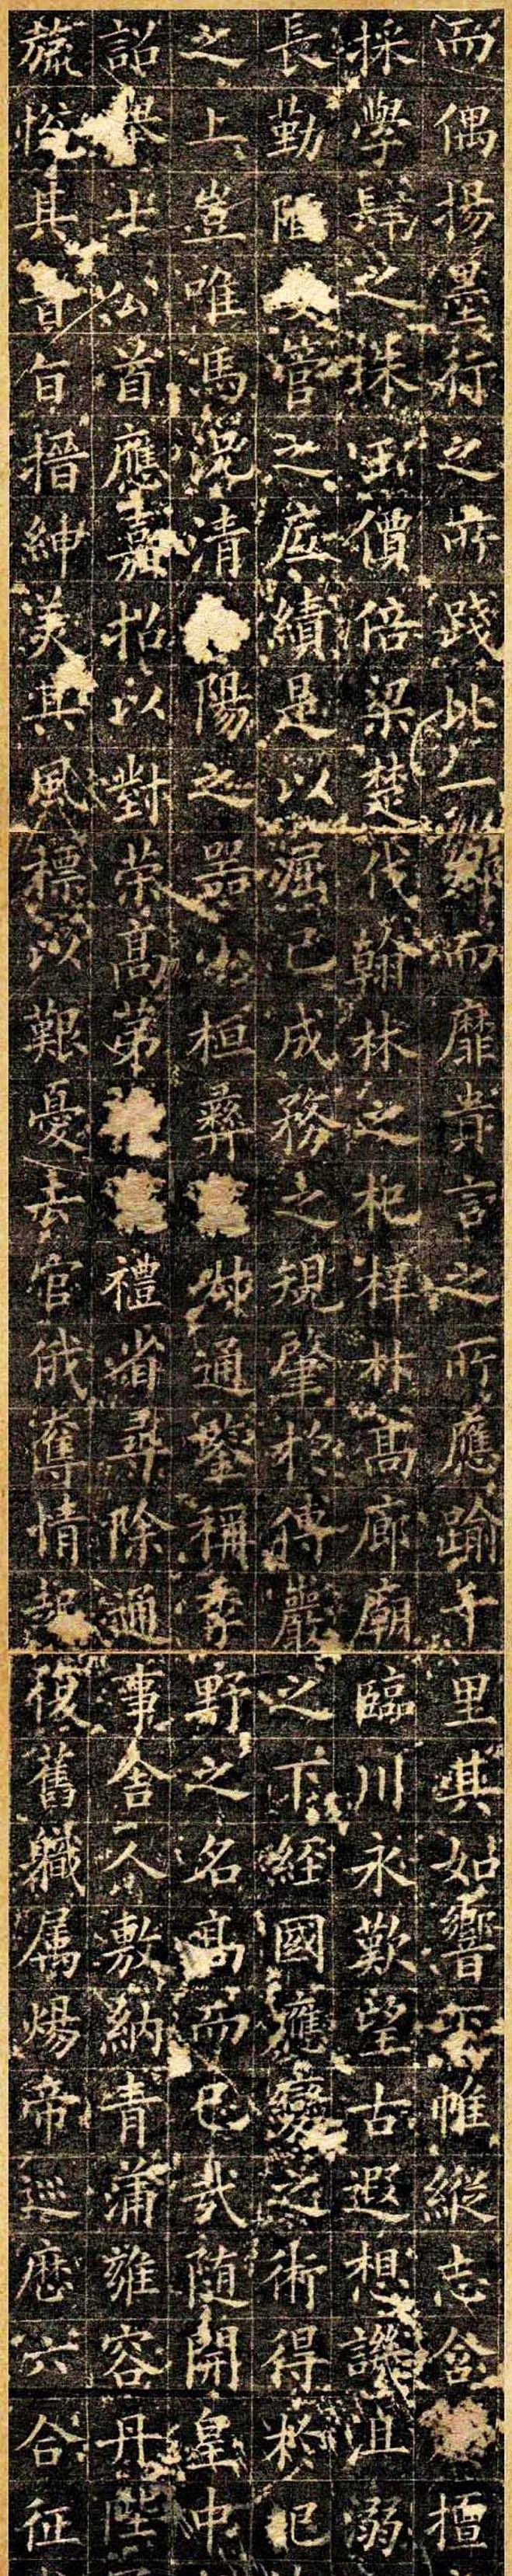 而偶揚墨行之所踐此一鄰而靡貴言之所應踰千里其如響亦帷縱志含擅
採學肆之探函價倍梁楚代翰林之杞梓林高廊廟臨川永歎望古遐想譏沮溺
長勤陋管之庶績是以屈己成務之規肇於傅巖之下經國應變之術得於圯
之上豈唯馮浣清陽之器山桓彝幼通鑒稱李野之名高而已哉隨開皇中
詔舉士公首應嘉招以對策高第禮省尋除通事舍人敷納青蒲雍容丹陛
旒悅其旨搢紳美其風標以艱憂去官俄奪情起復舊職属煬帝巡歷六合征